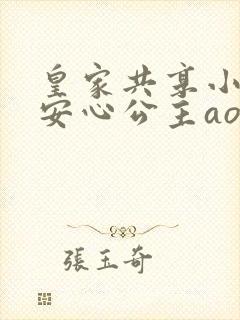 皇家共享小
安心公主ao
張玉奇